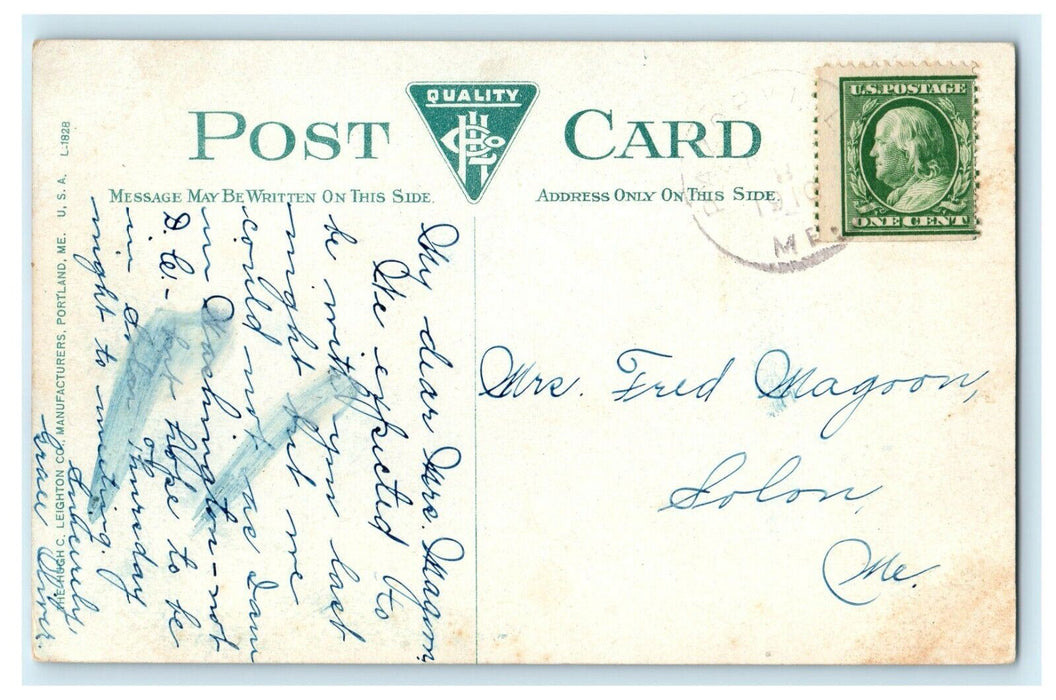 POST CARD
QUALITY
HCLCo
MESSAGE MAY BE WRITTEN ON THIS SIDE.
ADDRESS ONLY ON THIS SIDE
U.S. POSTAGE
ONE CENT
1910
ME.
My dear Mrs. Magoon,
We expected to
be with you last
night but we
could not as I am
in Washington - not
D. C. - but hope to be
in Solon Thursday
night to meeting.
Sincerely,
Grace
Mrs. Fred Magoon,
Solon,
Me.
THE HUGH C. LEIGHTON CO., MANUFACTURERS, PORTLAND, ME. U. S. A. L-1828